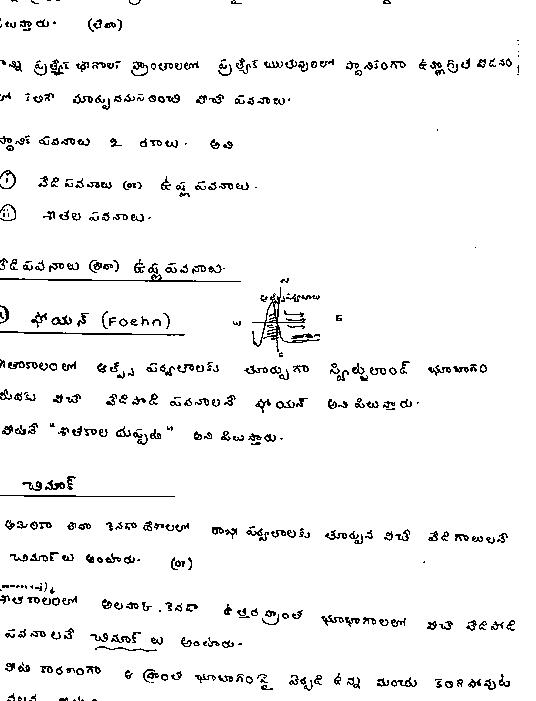 పిలుస్తారు. (లేదా)
కొన్ని ప్రత్యేక భూభాగాల ప్రాంతాలలో ప్రత్యేక ఋతువులలో స్థానికంగా ఉష్ణోగ్రత పీడనం
లో కలిగే మార్పుననుసరించి వీచే పవనాలు.
స్థానిక పవనాలు 2 రకాలు. అవి
(i) వేడి పవనాలు (or) ఉష్ణ పవనాలు.
(ii) శీతల పవనాలు.
వేడి పవనాలు (లేదా) ఉష్ణ పవనాలు.
N
ఆల్ప్స్ పర్వతాలు
W E
S
ఫోయన్ (Foehn)
శీతాకాలంలో ఆల్ప్స్ పర్వతాలకు తూర్పుగా స్విట్జర్లాండ్ భూభాగం
మీదకు వీచే వేడి పొడి పవనాలనే ఫోయన్ అని పిలుస్తారు.
వీటినే "శీతకాల దుప్పటి" అని పిలుస్తారు.
చినూక్
అమెరికా కెనడా దేశాలలో రాకీ పర్వతాలకు తూర్పున వీచే వేడి గాలులనే
చినూక్ లు అంటారు. (or)
శీతాకాలంలో అలస్కా, కెనడా ఉత్తర ప్రాంత భూభాగాలలో వీచే వేడిపొడి
పవనాలనే చినూక్ లు అంటారు.
వీటి కారణంగా ఆ ప్రాంత భూభాగంపై ఏర్పడి ఉన్న మంచు కరిగిపోవుట